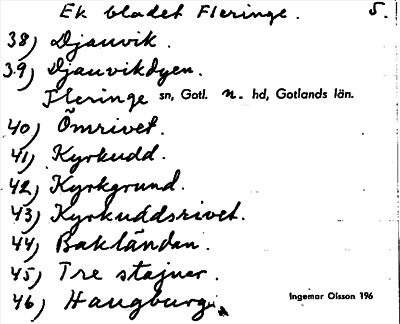 Ek bladet Fleringe. 5.
38) Djauvik.
39) Djauvikdyen.
Fleringe sn, Gotl. n. hd, Gotlands län.
40) Ömrivet.
41) Kyrkudd.
42) Kyrkgrund.
43) Kyrkuddsrivet.
44) Bakländan.
45) Tre stajnar.
46) Haugburg
Ingemar Olsson 196